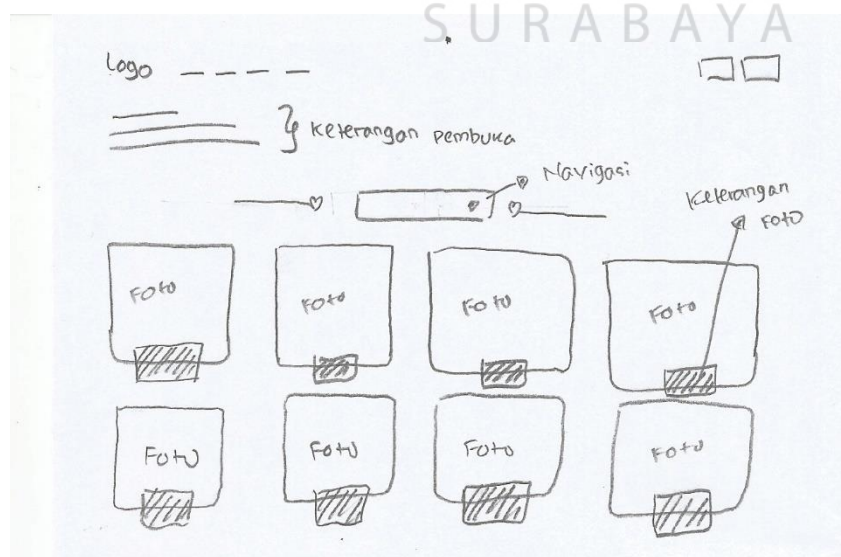 SURABAYA
Logo
Keterangan pembuka
Navigasi
Keterangan
Foto
Foto
Foto
Foto
Foto
Foto
Foto
Foto
Foto